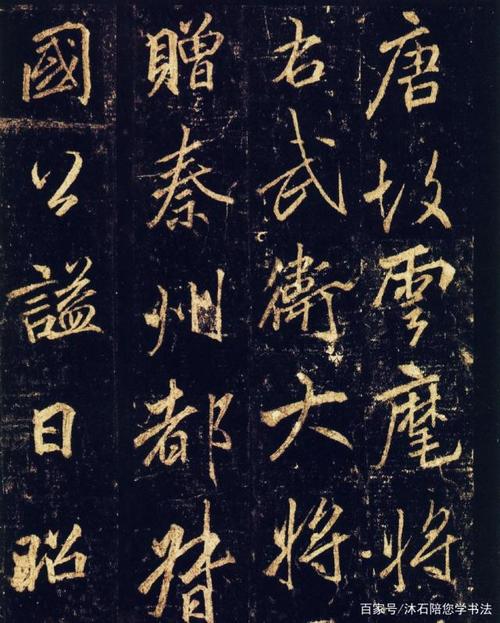 唐故雲麾將
右武衛大將
贈秦州都督
國公謚曰昭
百家号/沐石陪您学书法